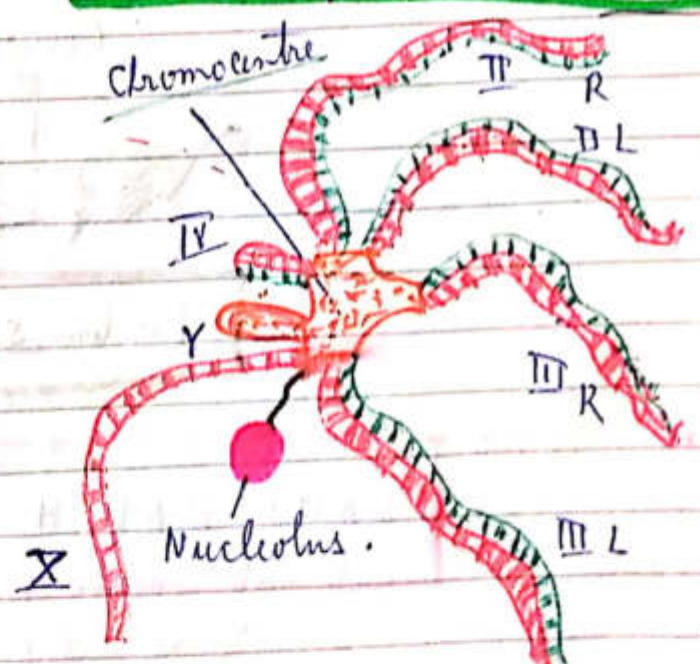 Chromocentre
II
R
II L
IV
Y
III
R
Nucleolus.
III L
X